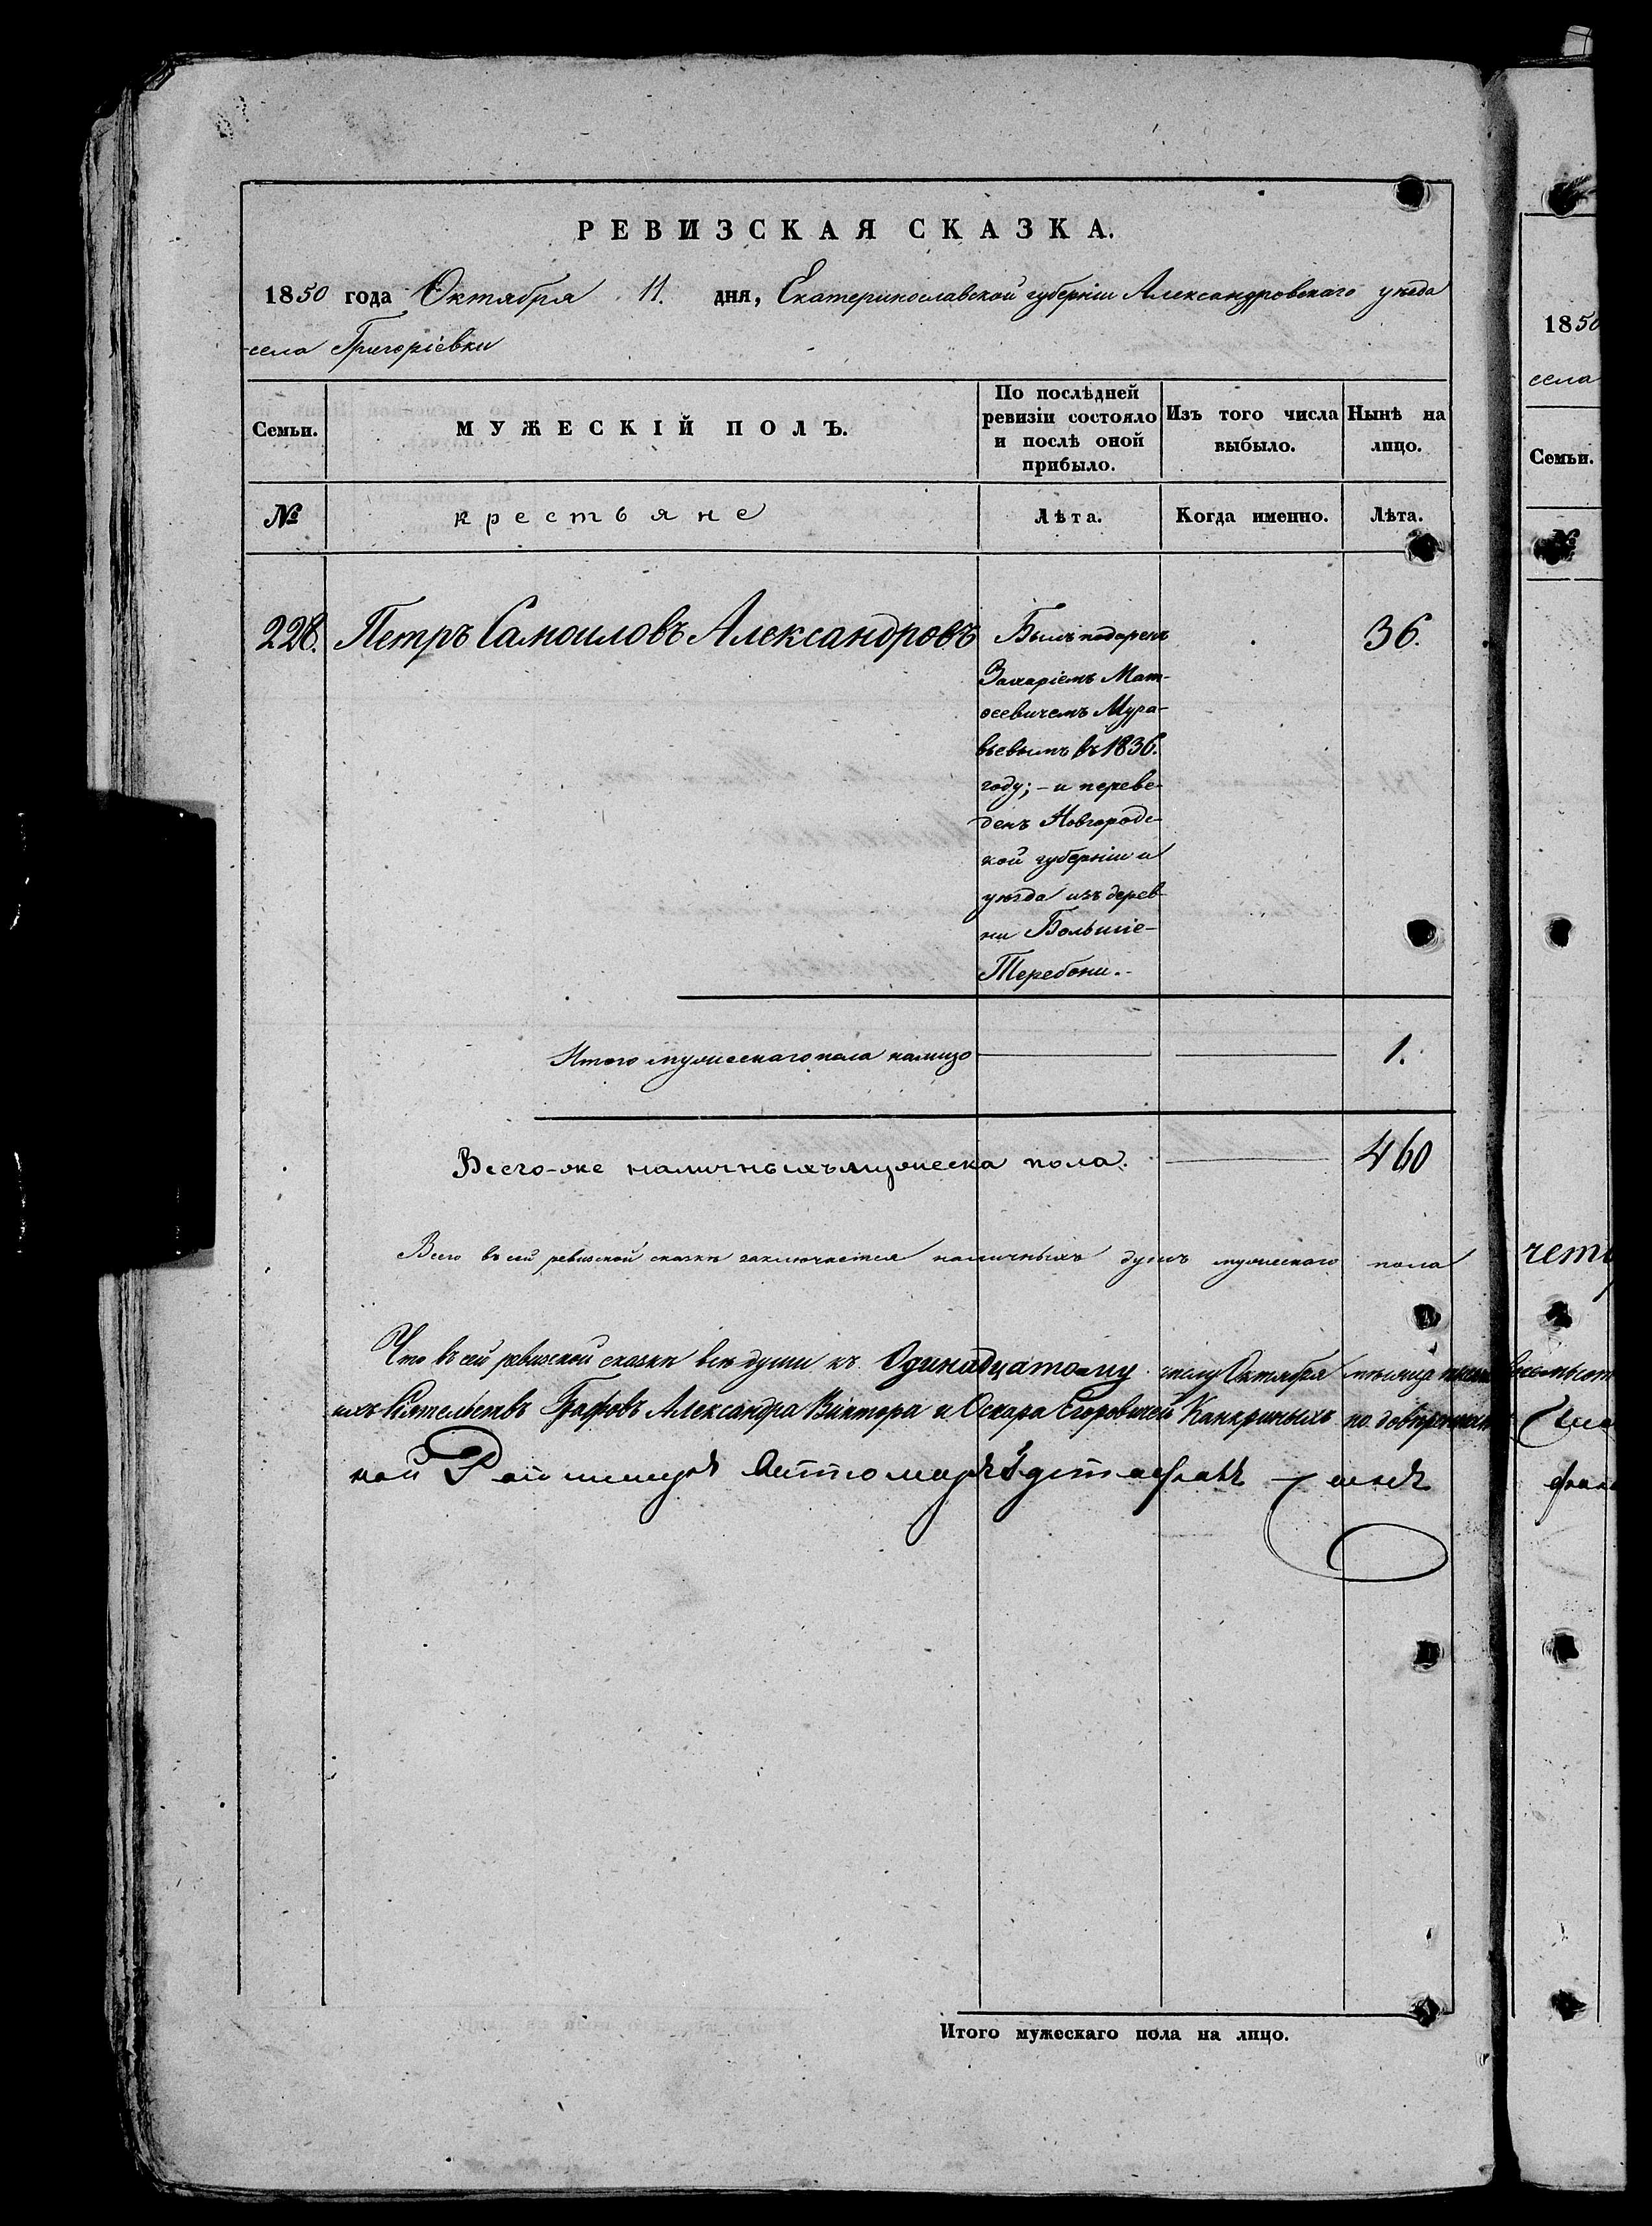 РЕВИЗСКАЯ СКАЗКА.
1850 года Октября 11. дня, Екатеринославской губерніи Александровскаго уѣзда
села Григоріевки
Семьи.
МУЖЕСКІЙ ПОЛЪ.
По послѣдней
ревизіи состояло
и послѣ оной
прибыло.
Изъ того числа
выбыло.
Нынѣ на
лицо.
№
крестьяне
Лѣта.
Когда именно.
Лѣта.
228. Петръ Самоиловъ Александровъ
Былъ подаренъ
Захаріемъ Мат-
вѣевичемъ Мура-
вьевымъ въ 1836.
году; - и переве-
денъ Новгородс-
кой губерніи и
уѣзда изъ дерев-
ни Большіе-
Теребони.
36.
Итого мужескаго пола налицо 1.
Всего-же наличныхъ мужеска пола. 460
Всего въ сей ревизской сказкѣ заключается наличныхъ душъ мужескаго пола
Что въ сей ревизской сказкѣ всѣ души къ Одинадцатому числу Октября мѣсяца
ихъ Сіятельствъ Графовъ Александра Виктора и Оскара Егоровичей Канкриныхъ по
ной
Итого мужескаго пола на лицо.
1850
села
Семьи.
№